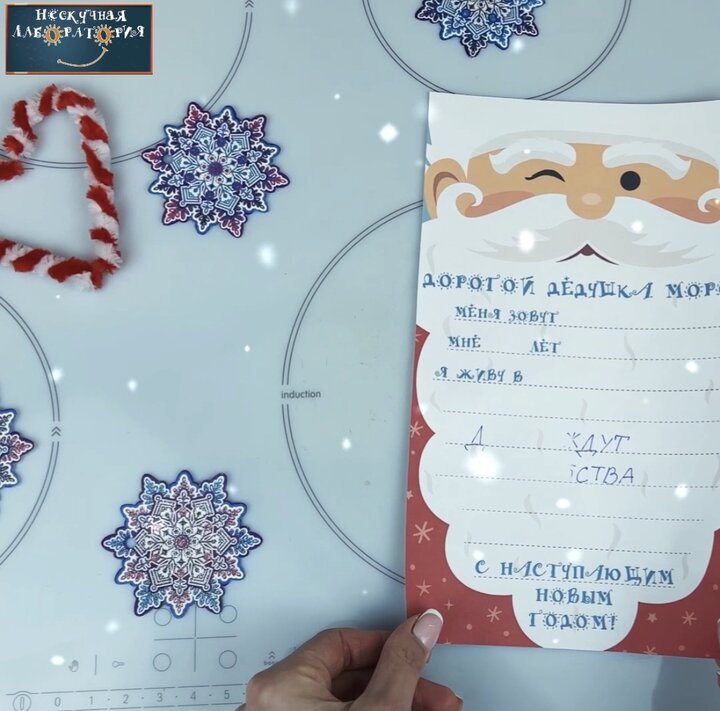 НЕСКУЧНАЯ
ЛАБОРАТОРИЯ
ДОРОГОЙ ДЕДУШКА МОР
МЕНЯ ЗОВУТ
МНЕ ЛЕТ
Я ЖИВУ В
Д ЖДУТ
СТВА
С НАСТУПАЮЩИМ
НОВЫМ
ГОДОМ!
induction
0 1 2 3 4 5